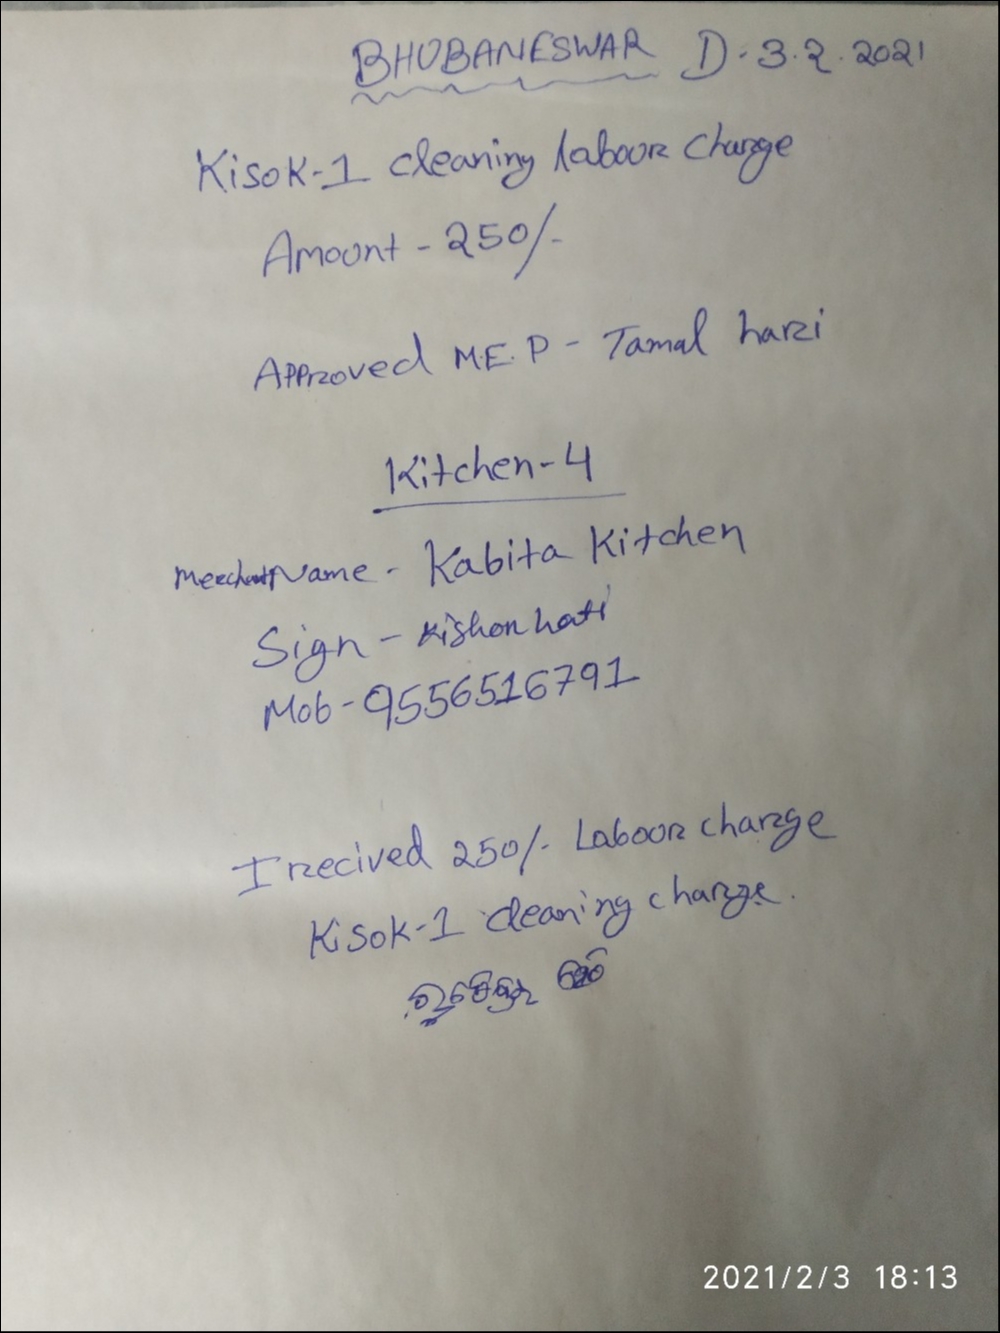 BHUBANESWAR D-3.2.2021
Kisok-1 cleaning labour charge
Amount - 250/-
Approved M.E.P - Tamal hari
Kitchen-4
Merchant Name - Kabita Kitchen
Sign - Kishon hati
Mob - 9556516791
I recived 250/- Labour charge
Kisok-1 cleaning charge.
2021/2/3 18:13